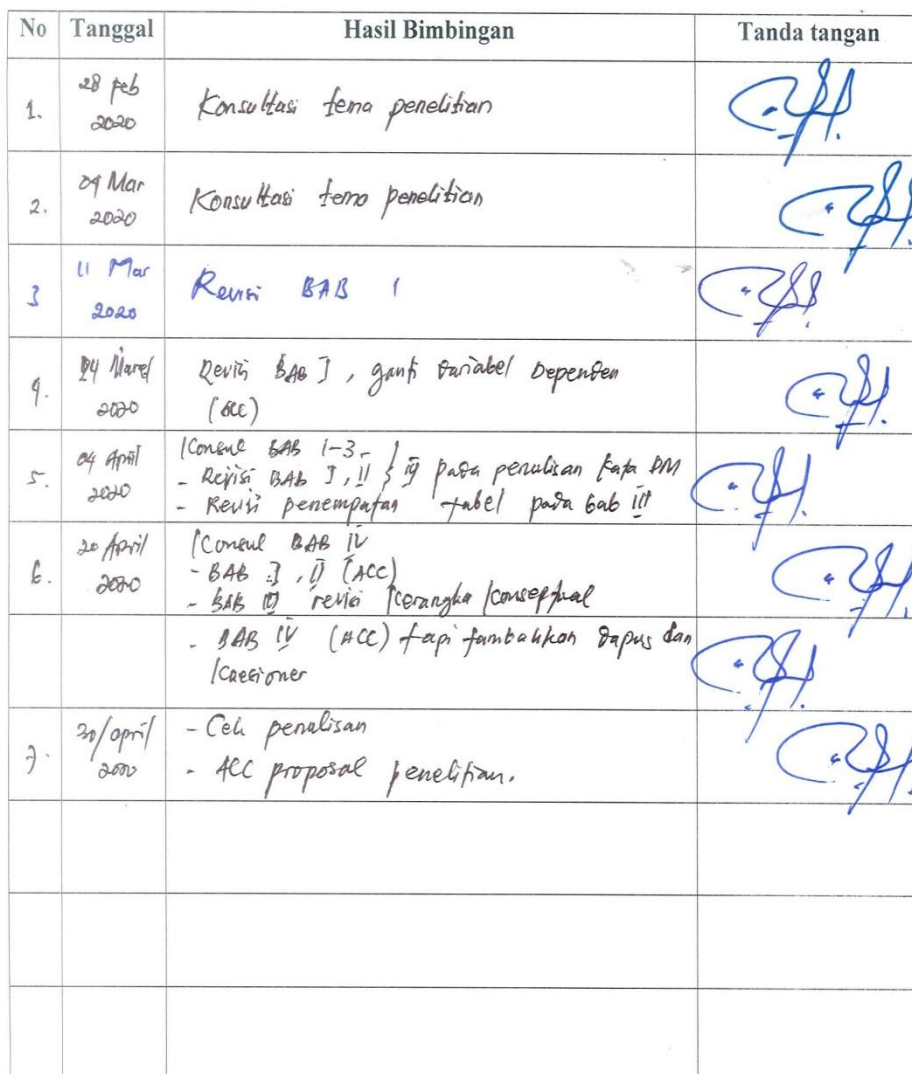 No Tanggal Hasil Bimbingan Tanda tangan
1. 28 feb 2020 Konsultasi tema penelitian
2. 09 Mar 2020 Konsultasi tema penelitian
3 11 Mar 2020 Revisi BAB 1
4. 24 Maret 2020 Revisi BAB I, ganti variabel Dependen
(ACC)
5. 04 April 2020 Konsul BAB 1-3
- Revisi BAB I, II } pada penulisan kata DM
- Revisi penempatan tabel pada bab III
6. 20 April 2020 Konsul BAB IV
- BAB I, II (ACC)
- BAB III revisi kerangka konseptual
- BAB IV (ACC) tapi tambahkan dapus dan
kuesioner
7. 30/april 2020 - Cek penulisan
- ACC proposal penelitian.